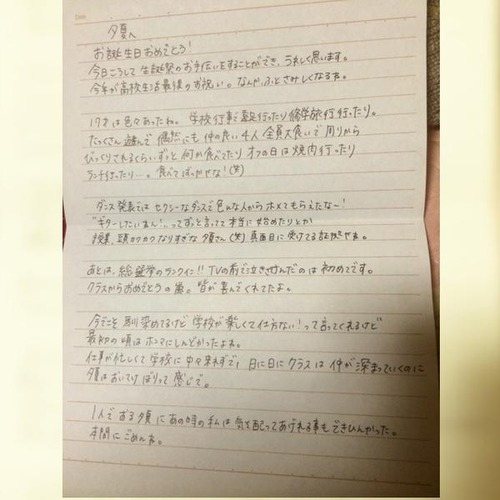 夕夏へ
お誕生日おめでとう!
今日こうして生誕祭のお手伝いをすることができ、うれしく思います。
今年が高校生活最後のお祝い。なんか、ふとさみしくなるね。
17才は色々あったね。学校行事で遠足行ったり修学旅行行ったり。
たっくさん遊んで 偶然にも仲の良い4人全員大食いで 周りから
びっくりされるくらい ずっと何か食べてたり オフの日は焼肉行ったり
ランチ行ったり…。食べてばっかやな!(笑)
ダンス発表ではセクシーなダンスで色んな人からホメてもらえたな〜!
"ギターしたいまん"、ってずっと言ってて本当に始めたりとか
授業、頭カタカタなりすぎな夕夏さん(笑)真面目に受けてる証拠やね。
あとは、総選挙のランクイン!! TVの前で泣きさけんだのは初めてです。
クラスからおめでとうの嵐。皆が喜んでくれてたよ。
今でこそ馴染めてるけど 学校が楽しくて仕方ない!って言ってくれるけど
最初の頃はホンマにしんどかったよね。
仕事が忙しくて学校に中々来れずで、日に日にクラスは仲が深まっていくのに
夕夏はおいてけぼりって感じで。
1人でおる夕夏にあの時の私は気を配ってあげれる事もできひんかった。
本間にごめんね。